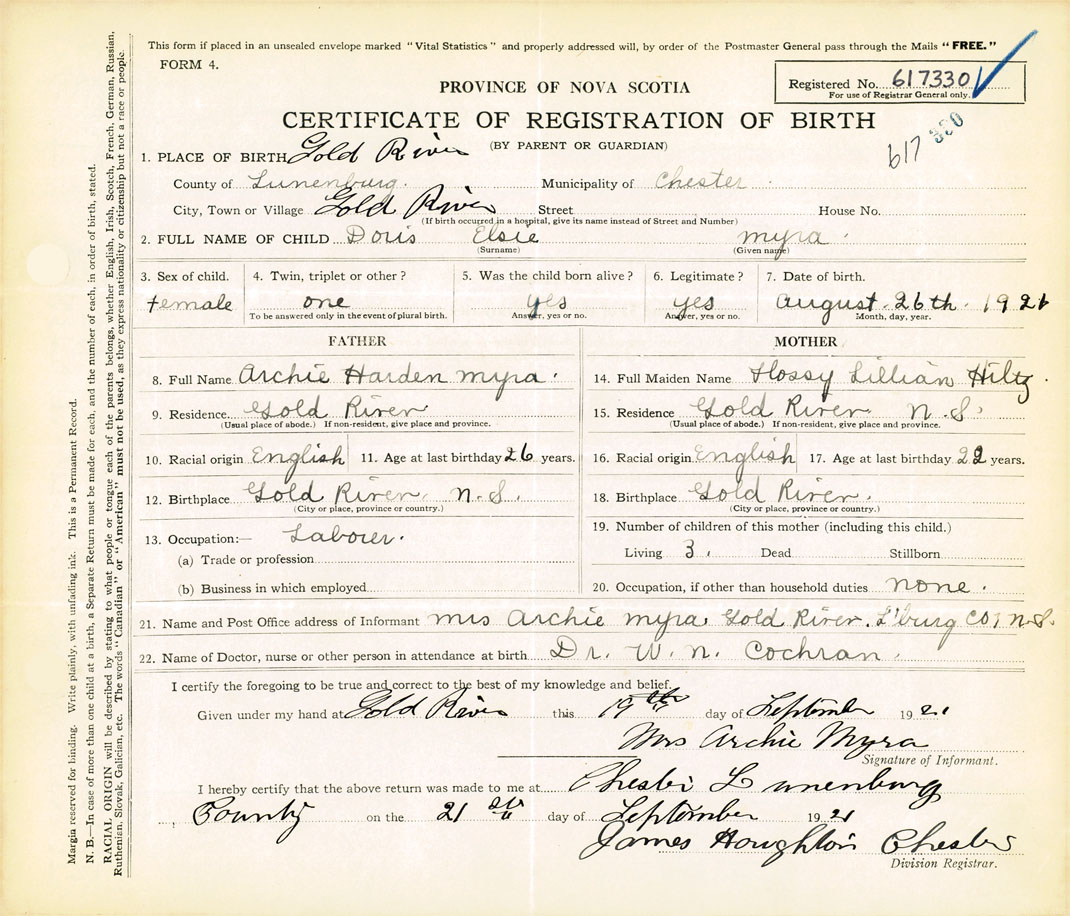 This form if placed in an unsealed envelope marked "Vital Statistics" and properly addressed will, by order of the Postmaster General pass through the Mails "FREE."
FORM 4.
Registered No. 617330
For use of Registrar General only.
PROVINCE OF NOVA SCOTIA
CERTIFICATE OF REGISTRATION OF BIRTH
617 330
(BY PARENT OR GUARDIAN)
1. PLACE OF BIRTH Gold River
County of Lunenburg. Municipality of Chester
City, Town or Village Gold River Street House No.
(If birth occurred in a hospital, give its name instead of Street and Number)
2. FULL NAME OF CHILD Doris Elsie myra
(Surname) (Given name)
3. Sex of child. 4. Twin, triplet or other? 5. Was the child born alive? 6. Legitimate? 7. Date of birth.
Female one yes yes august 26th 1921
To be answered only in the event of plural birth. Answer, yes or no. Answer, yes or no. Month, day, year.
FATHER MOTHER
8. Full Name Archie Harden myra. 14. Full Maiden Name Flossy Lillian Hiltz.
9. Residence Gold River 15. Residence Gold River n.S.
(Usual place of abode.) If non-resident, give place and province. (Usual place of abode.) If non-resident, give place and province.
10. Racial origin English 11. Age at last birthday 26 years. 16. Racial origin English 17. Age at last birthday 22 years.
12. Birthplace Gold River. n.S. 18. Birthplace Gold River.
(City or place, province or country.) (City or place, province or country.)
13. Occupation:— Laborer. 19. Number of children of this mother (including this child.)
(a) Trade or profession Living 3. Dead Stillborn
(b) Business in which employed 20. Occupation, if other than household duties none.
21. Name and Post Office address of Informant mrs Archie myra. Gold River. L'burg Co, n.S.
22. Name of Doctor, nurse or other person in attendance at birth Dr. W. n. Cochran.
I certify the foregoing to be true and correct to the best of my knowledge and belief.
Given under my hand at Gold River this 19th day of September 1921
Mrs Archie Myra
Signature of Informant.
I hereby certify that the above return was made to me at Chester Lunenburg
County on the 21st day of September 1921
James Houghton Chester
Division Registrar.
Margin reserved for binding. Write plainly, with unfading ink. This is a Permanent Record.
N. B.—In case of more than one child at a birth, a Separate Return must be made for each, and the number of each, in order of birth, stated.
RACIAL ORIGIN will be described by stating to what people or tongue each of the parents belongs, whether English, Irish, Scotch, French, German, Russian,
Ruthenian, Slovak, Galician, etc. The words "Canadian" or "American" must not be used, as they express nationality or citizenship but not a race or people.